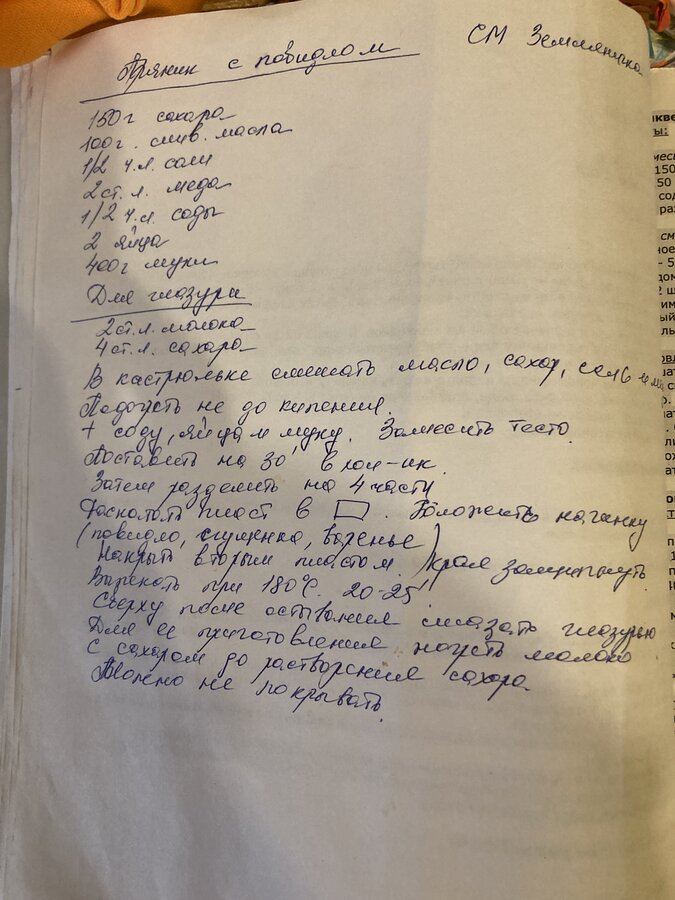 Пряник с повидлом
СМ Земляничка
150г сахара
100г. слив. масла
1/2 ч.л. соли
2ст. л. меда
1/2 ч.л. соды
2 яйца
400г муки
Для глазури
2ст.л. молока
4ст.л. сахара
В кастрюльке смешать масло, сахар, соль и м
Подогреть не до кипения.
+ соду, яйца и муку. Замесить тесто.
Поставить на 30' в хол-ик.
Затем разделить на 4 части
Раскатать пласт в □. Положить начинку
(повидло, сгущенка, варенье)
Накрыть вторым пластом, края защипнуть.
Выпекать при 180°С. 20-25'
Сверху после остывания смазать глазурью
Для ее приготовления нагреть молоко
с сахаром до растворения сахара.
Можно не покрывать.